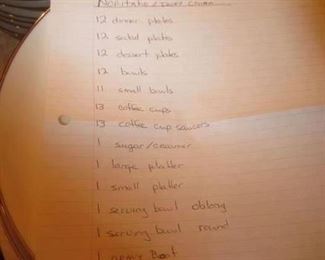 Noritake / Ivory China
12 dinner plates
12 salad plates
12 dessert plates
12 bowls
11 small bowls
13 coffee cups
13 coffee cup saucers
1 sugar/creamer
1 large platter
1 small platter
1 serving bowl oblong
1 serving bowl round
1 Boat